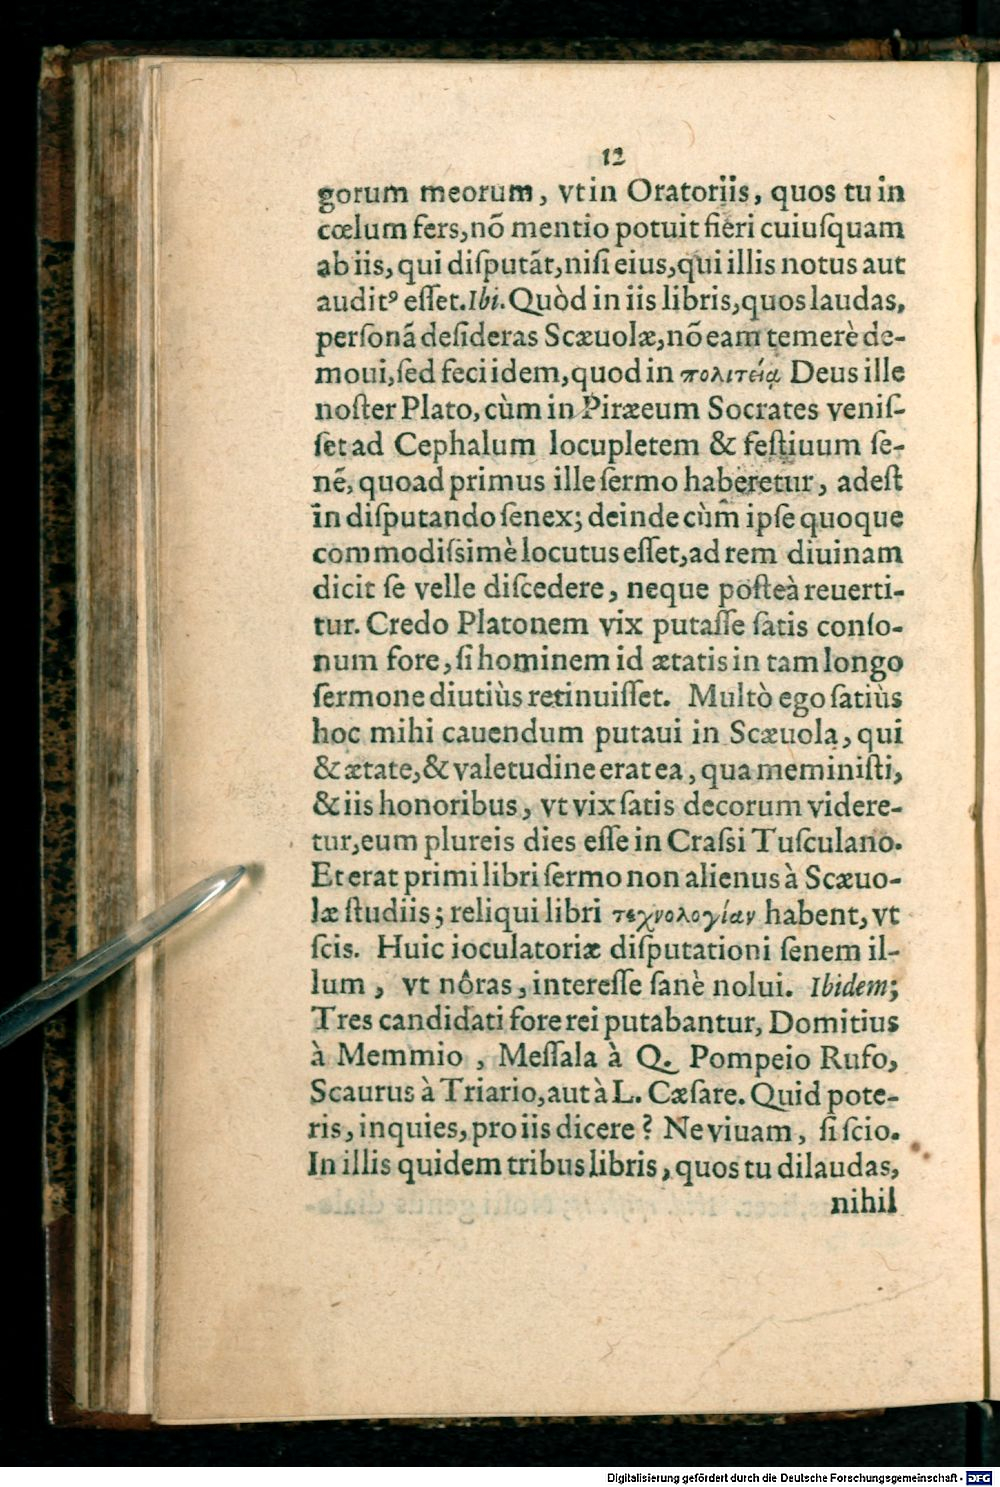 12
gorum meorum, vt in Oratoriis, quos tu in
cœlum fers, nõ mentio potuit fieri cuiuſquam
ab iis, qui diſputãt, niſi eius, qui illis notus aut
auditꝰ eſſet. Ibi. Quòd in iis libris, quos laudas,
perſonã deſideras Scæuolæ, nõ eam temerè de-
moui, ſed feci idem, quod in πολιτείᾳ Deus ille
noſter Plato, cùm in Piræeum Socrates veniſ-
ſet ad Cephalum locupletem & feſtiuum ſe-
nẽ, quoad primus ille ſermo haberetur, adeſt
in diſputando ſenex; deinde cùm ipſe quoque
commodiſsimè locutus eſſet, ad rem diuinam
dicit ſe velle diſcedere, neque poſteà reuerti-
tur. Credo Platonem vix putaſſe ſatis conſo-
num fore, ſi hominem id ætatis in tam longo
ſermone diutiùs retinuiſſet. Multò ego ſatiùs
hoc mihi cauendum putaui in Scæuola, qui
& ætate, & valetudine erat ea, qua meminiſti,
& iis honoribus, vt vix ſatis decorum videre-
tur, eum plureis dies eſſe in Craſsi Tuſculano.
Et erat primi libri ſermo non alienus à Scæuo-
læ ſtudiis; reliqui libri τεχνολογίαν habent, vt
ſcis. Huic ioculatoriæ diſputationi ſenem il-
lum, vt nôras, intereſſe ſanè nolui. Ibidem;
Tres candidati fore rei putabantur, Domitius
à Memmio, Meſſala à Q. Pompeio Rufo,
Scaurus à Triario, aut à L. Cæſare. Quid pote-
ris, inquies, pro iis dicere? Ne viuam, ſi ſcio.
In illis quidem tribus libris, quos tu dilaudas,
nihil
Digitalisierung gefördert durch die Deutsche Forschungsgemeinschaft - DFG